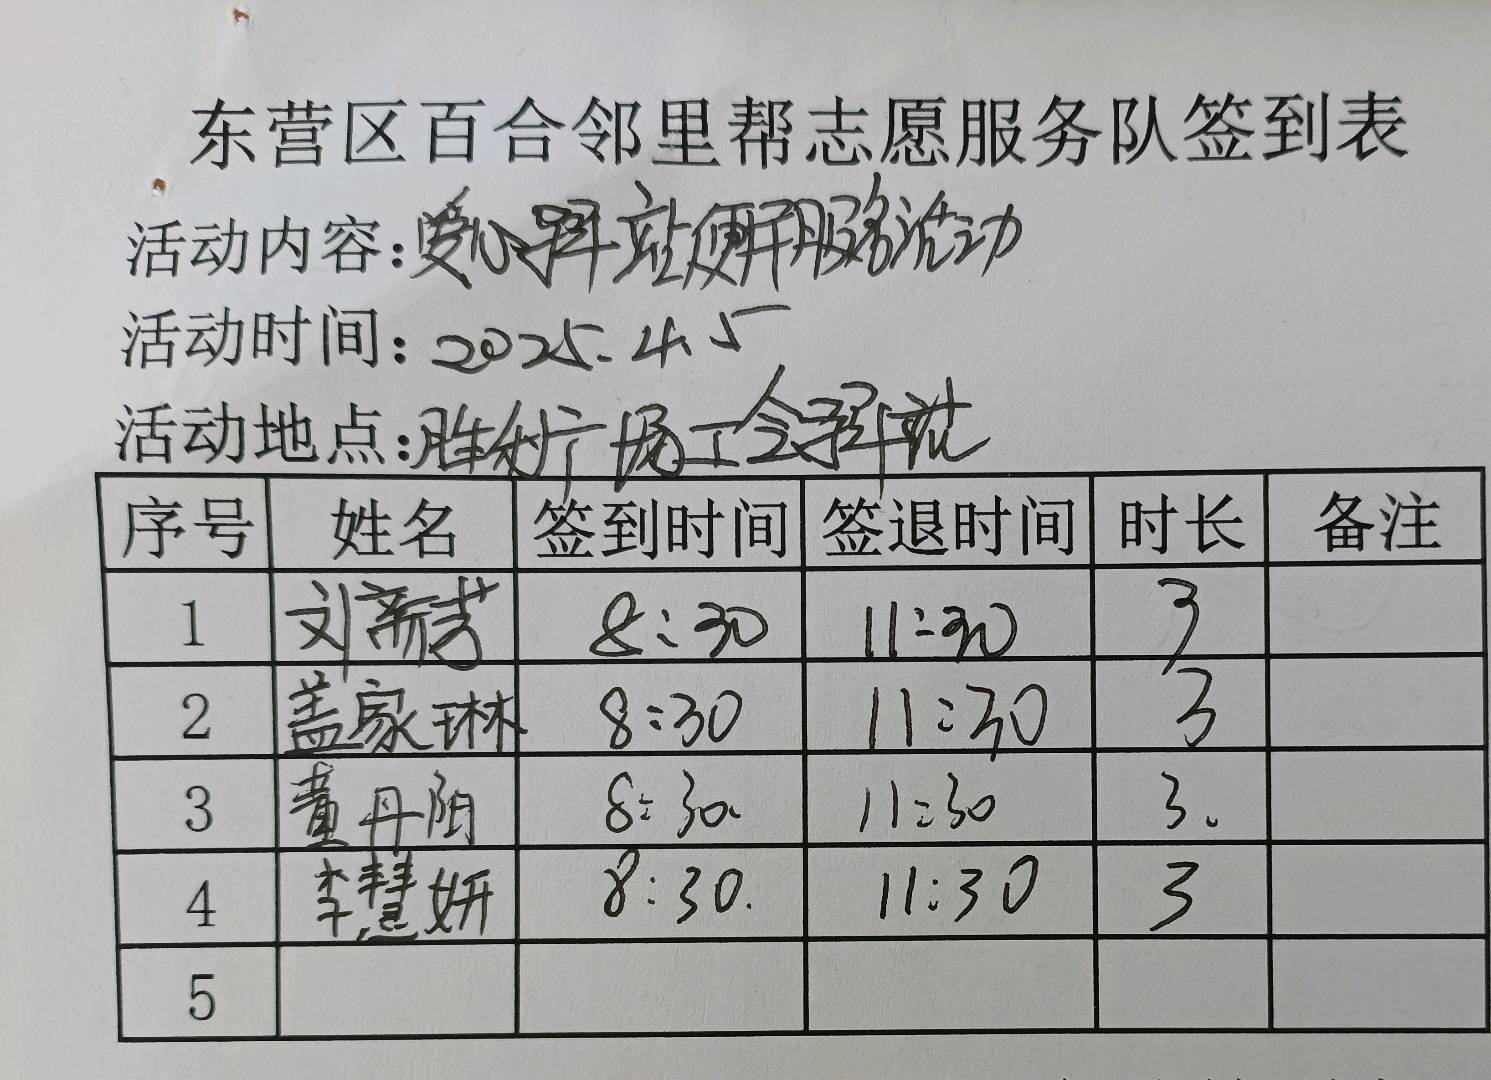 东营区百合邻里帮志愿服务队签到表
活动内容:爱心驿站便民服务活动
活动时间:2025.4.5
活动地点:胜利广场工会驿站
序号 姓名 签到时间 签退时间 时长 备注
1 刘新芳 8:30 11:30 3
2 盖家琳 8:30 11:30 3
3 董丹阳 8:30. 11:30 3.
4 李慧妍 8:30. 11:30 3
5